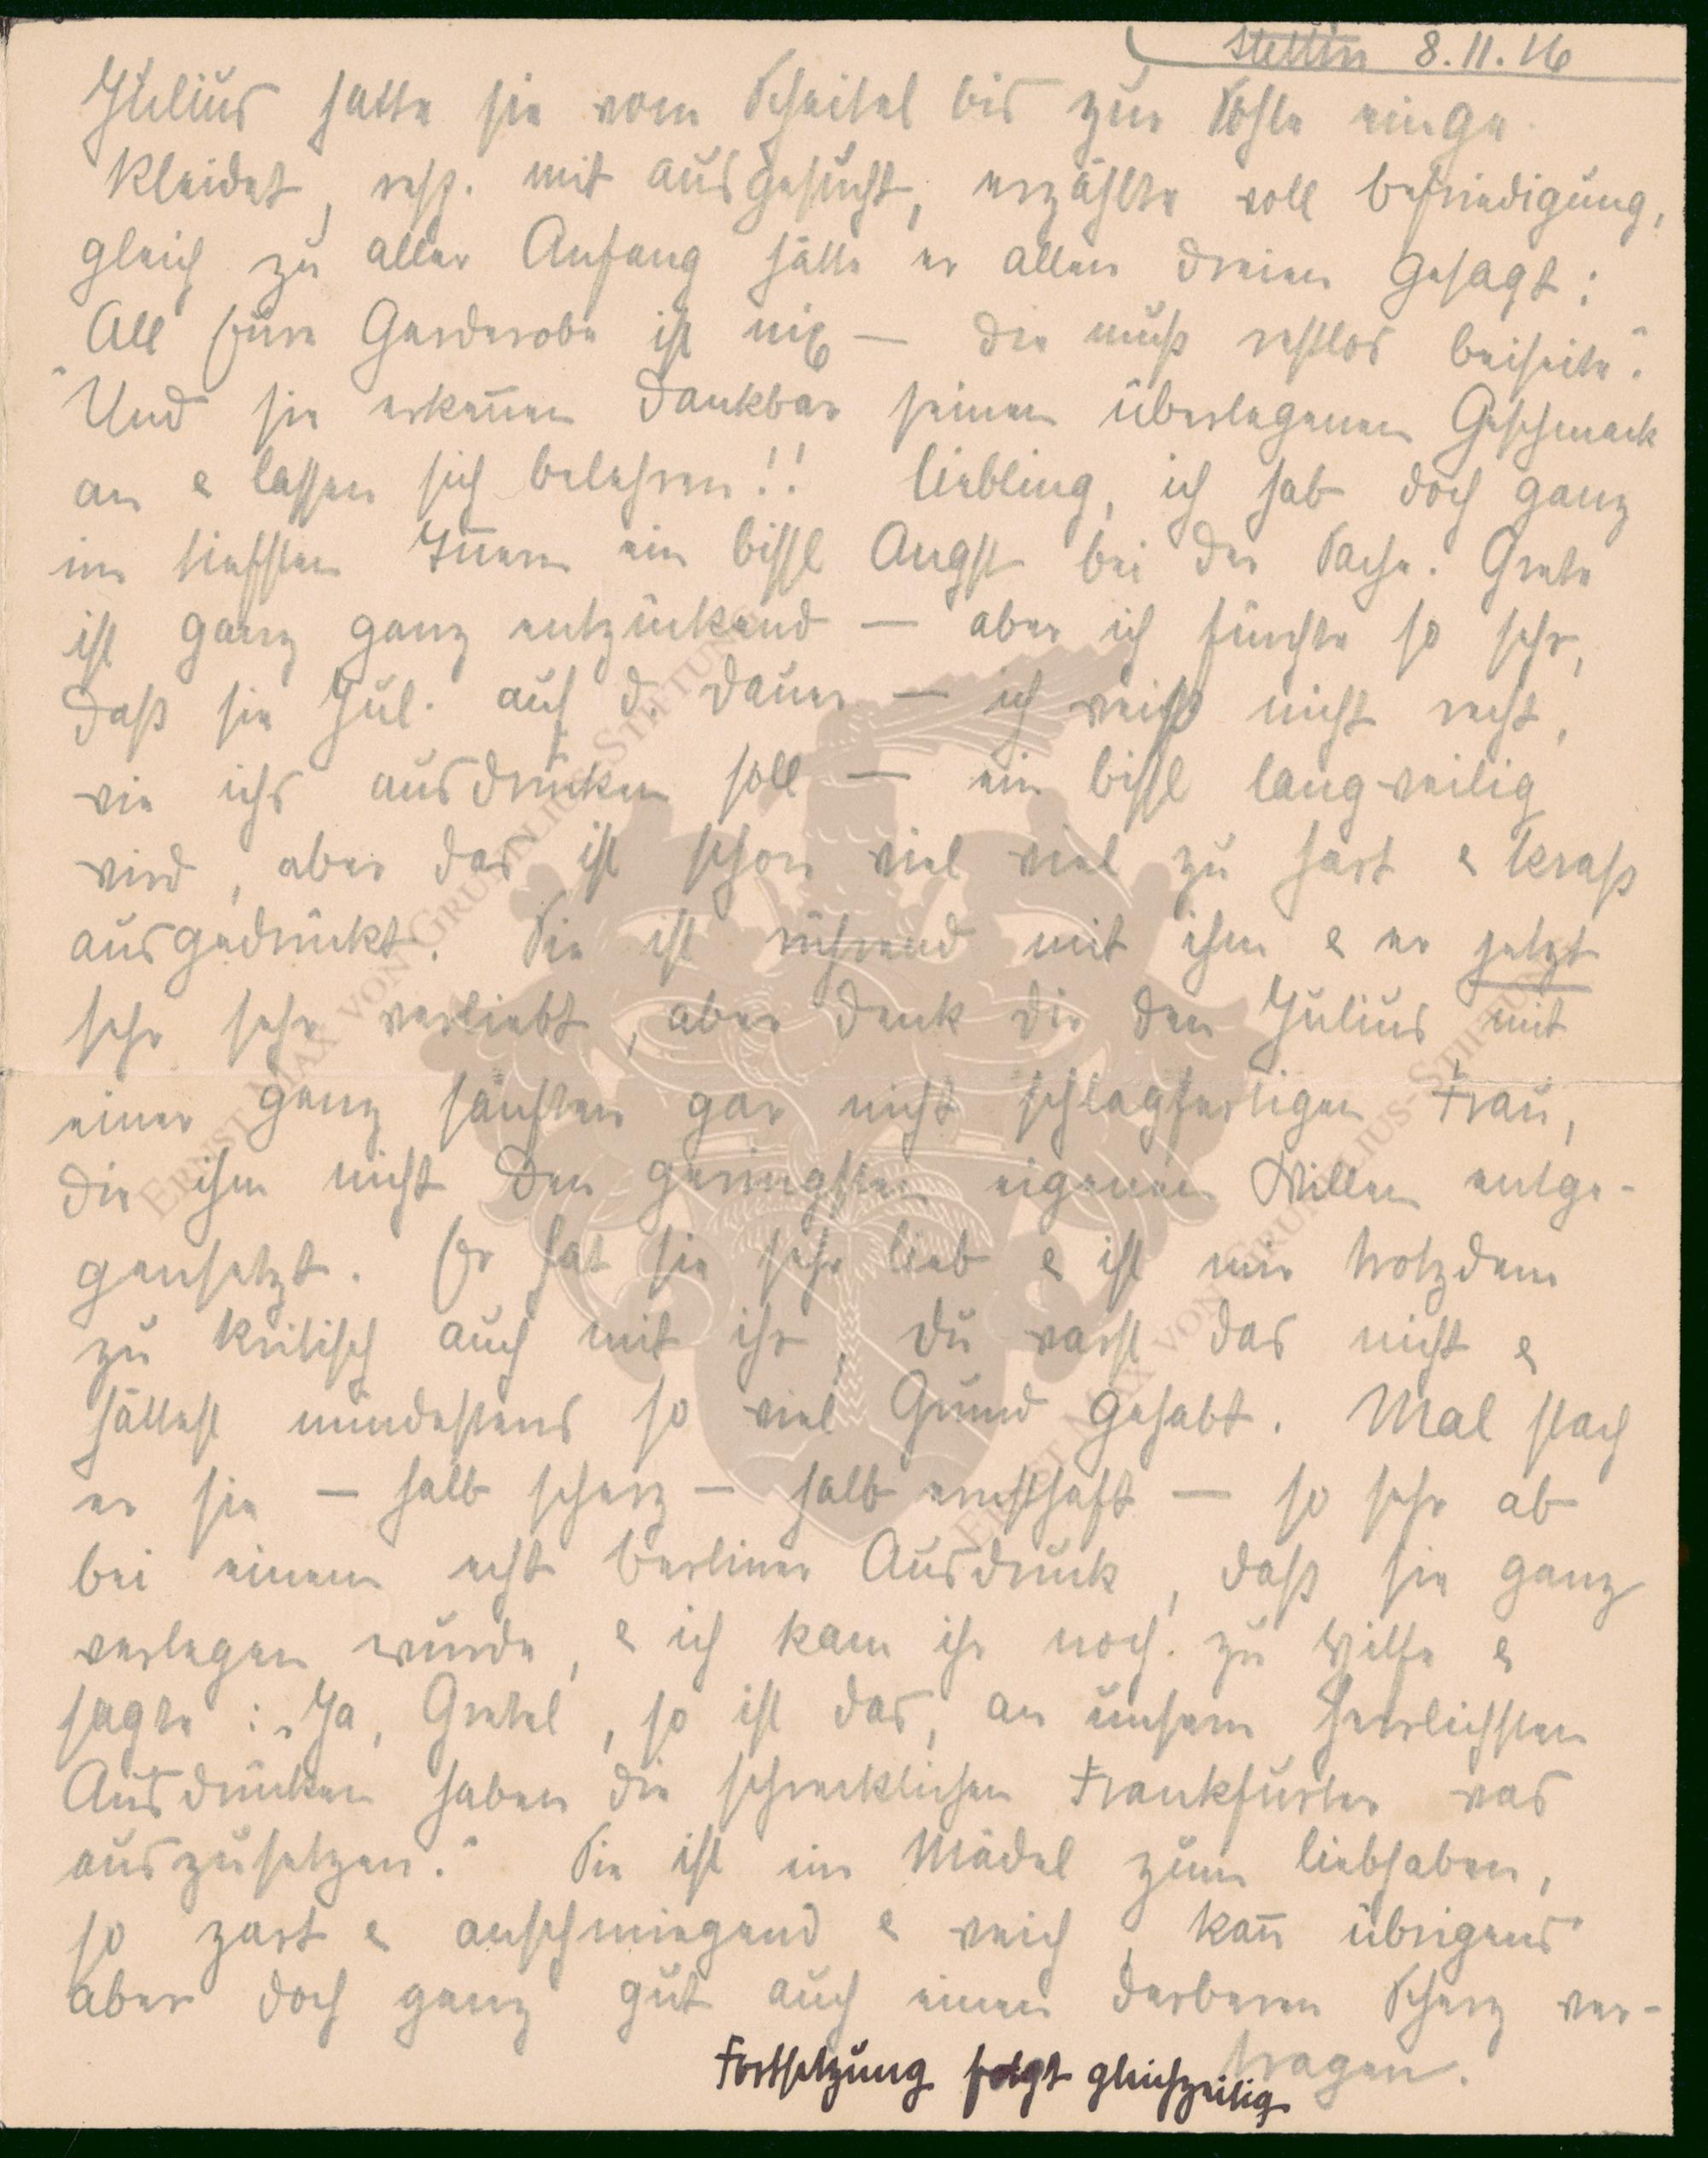 Stettin 8.11.16
Julius hatte sie vom Scheitel bis zur Sohle einge
kleidet, resp. mit ausgesucht, erzählte voll Befriedigung,
gleich zu aller Anfang hätte er allen dreien gesagt:
"All Eure Garderobe ist nix — die muß restlos beiseite."
Und sie erkeñen dankbar seinen überlegenen Geschmack
an & lassen sich belehren!! Liebling, ich hab doch ganz
im tiefsten Iñern ein bissl Angst bei der Sache. Grete
ist ganz ganz entzückend — aber ich fürchte so sehr,
daß sie Jul. auf d. Dauer — ich weiß nicht recht,
wie ichs ausdrücken soll — ein bissl lang-weilig
wird, aber das ist schon viel viel zu hart & krass
ausgedrückt. Sie ist rührend mit ihm & er jetzt
sehr sehr verliebt, aber denk Dir den Julius mit
einer ganz sanften gar nicht schlagfertigen Frau,
die ihm nicht den geringsten eigenen Willen entge-
gensetzt. Er hat sie sehr lieb & ist mir trotzdem
zu kritisch auch mit ihr, Du warst das nicht &
hättest mindestens so viel Grund gehabt. Mal stach
er sie — halb scherz — halb ernsthaft — so sehr ab
bei einem echt Berliner Ausdruck, daß sie ganz
verlegen wurde, & ich kam ihr noch zu Hilfe &
sagte: "Ja, Gretel, so ist das, an unsern herrlichsten
Ausdrücken haben die schrecklichen Frankfurter was
auszusetzen." Sie ist ein Mädel zum liebhaben,
so zart & anschmiegend & weich, kañ übrigens
aber doch ganz gut auch einen derberen Scherz ver-
tragen.
Fortsetzung folgt gleichzeitig
ERNST MAX VON GRUNELIUS-STIFTUNG
ERNST MAX VON GRUNELIUS-STIFTUNG